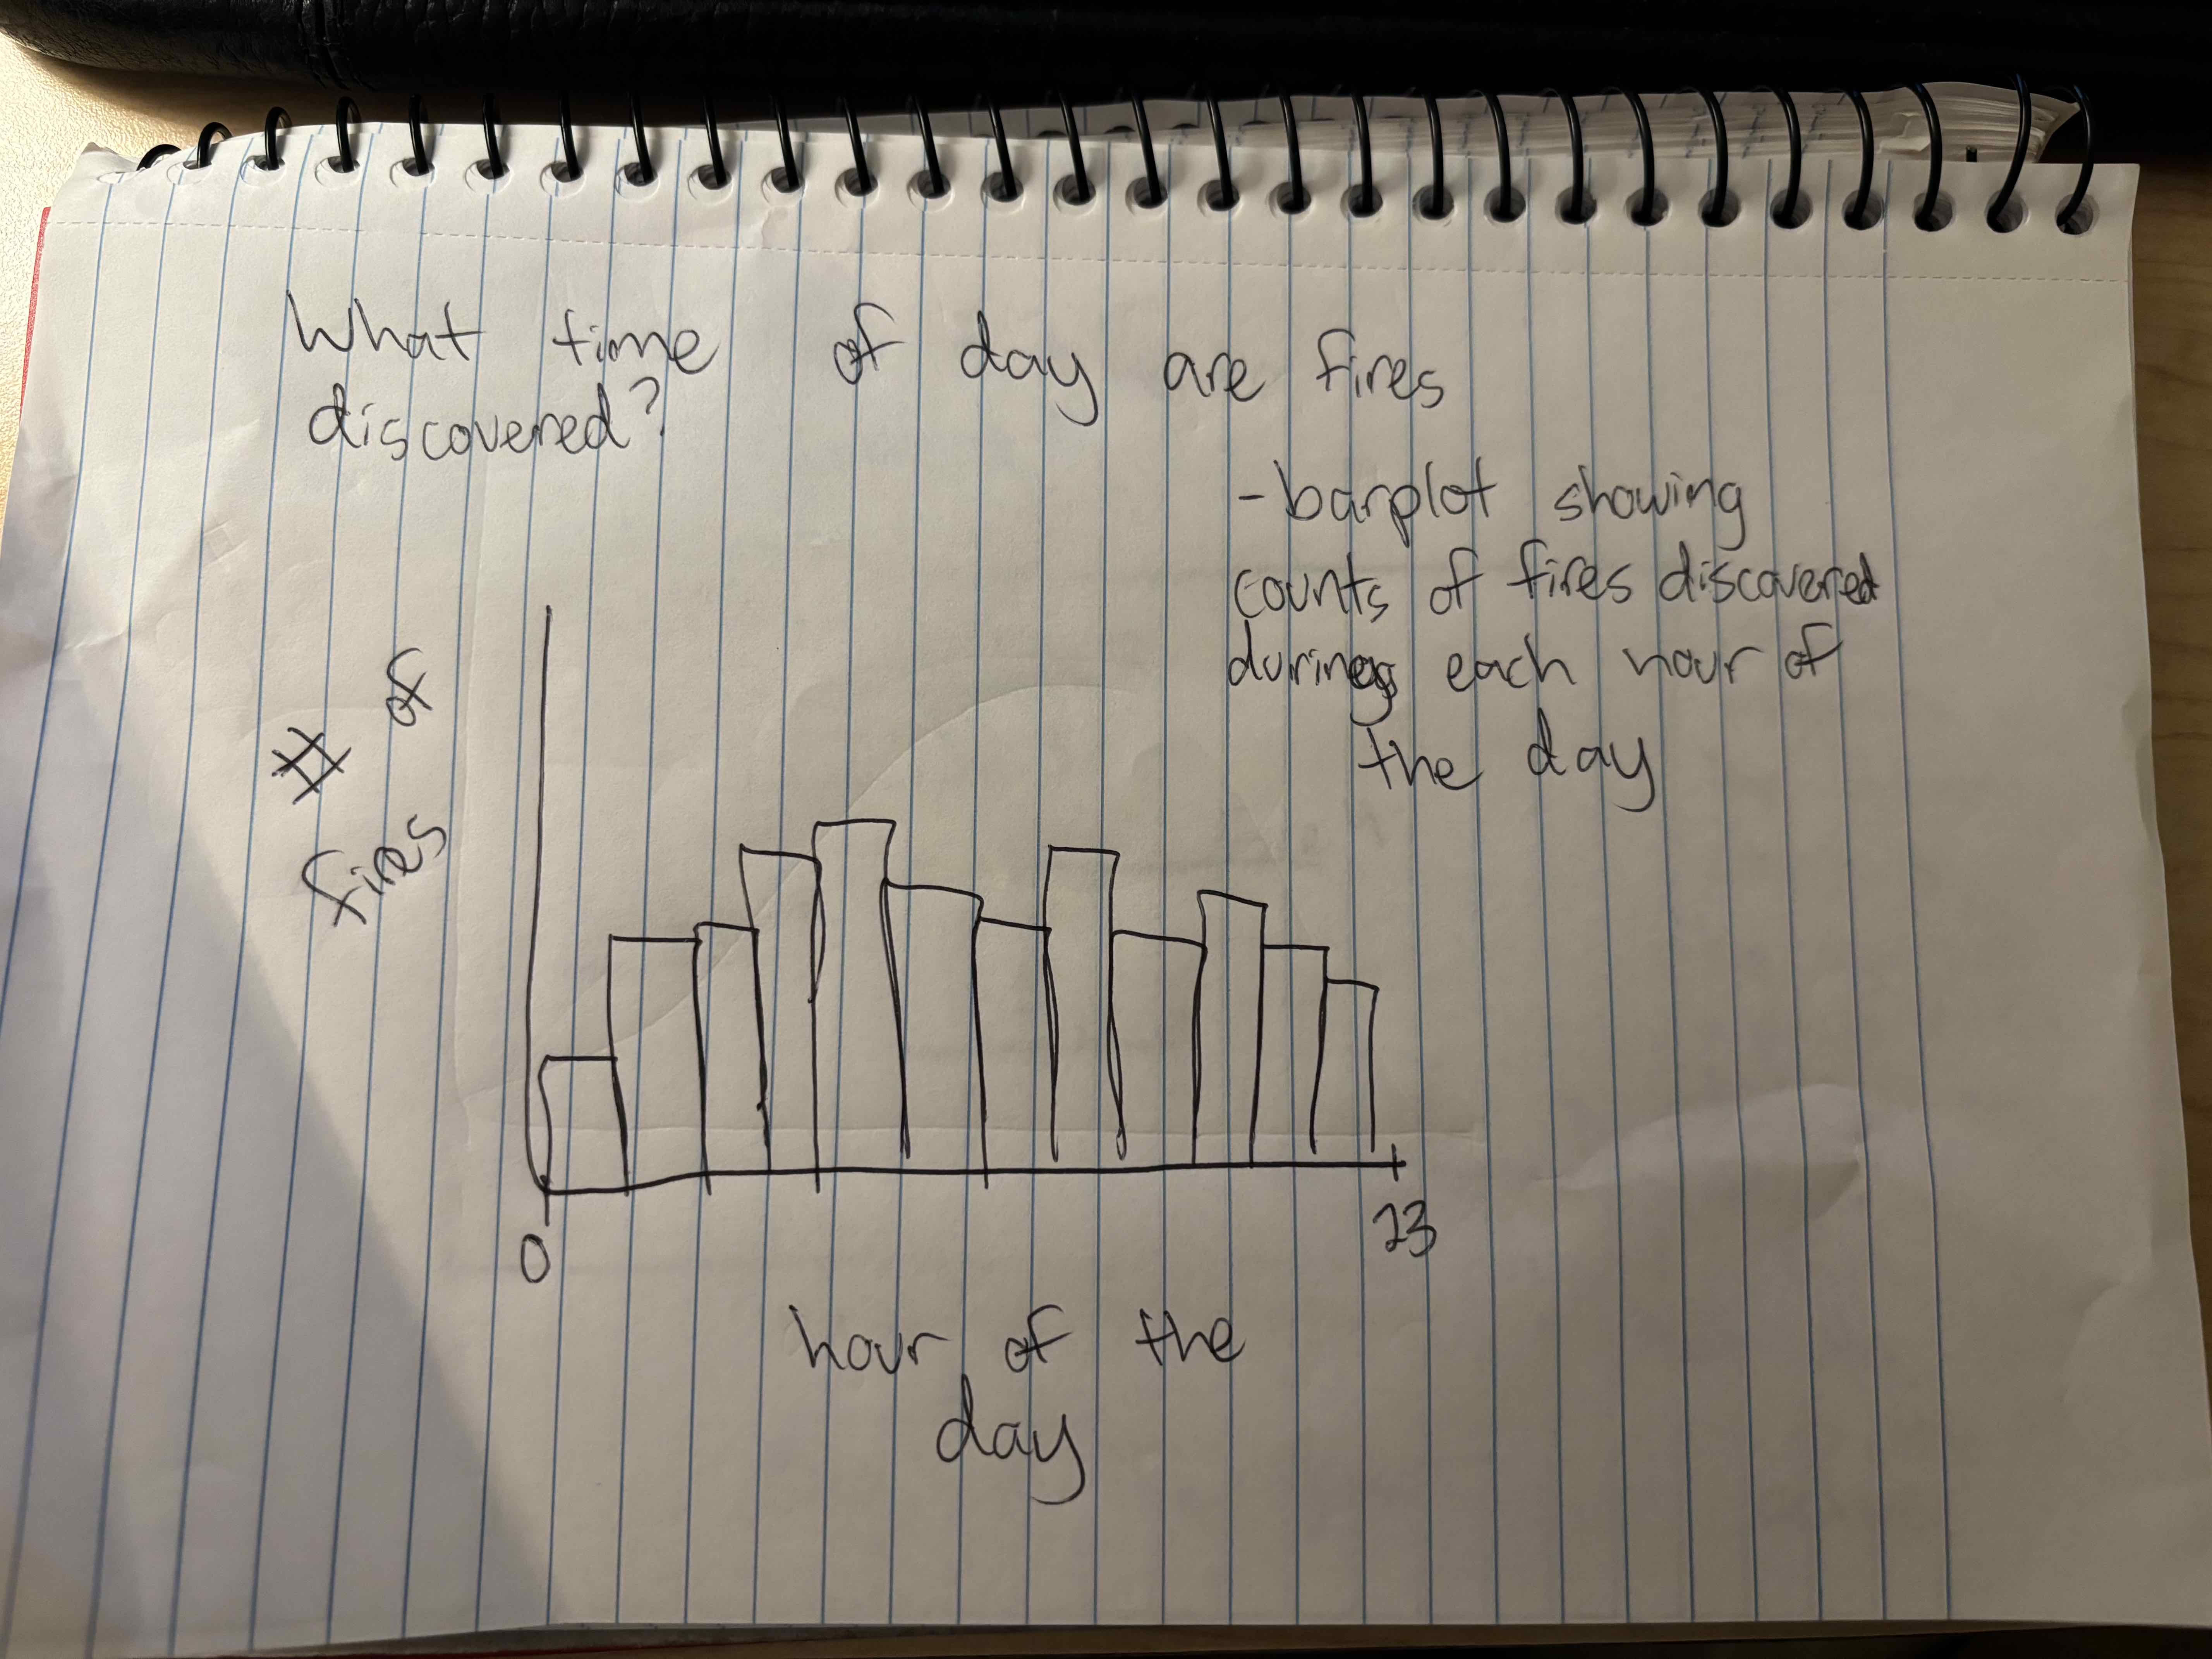 What time of day are fires
discovered?
- barplot showing
counts of fires discovered
during each hour of
the day
# of
fires
0
23
hour of the
day